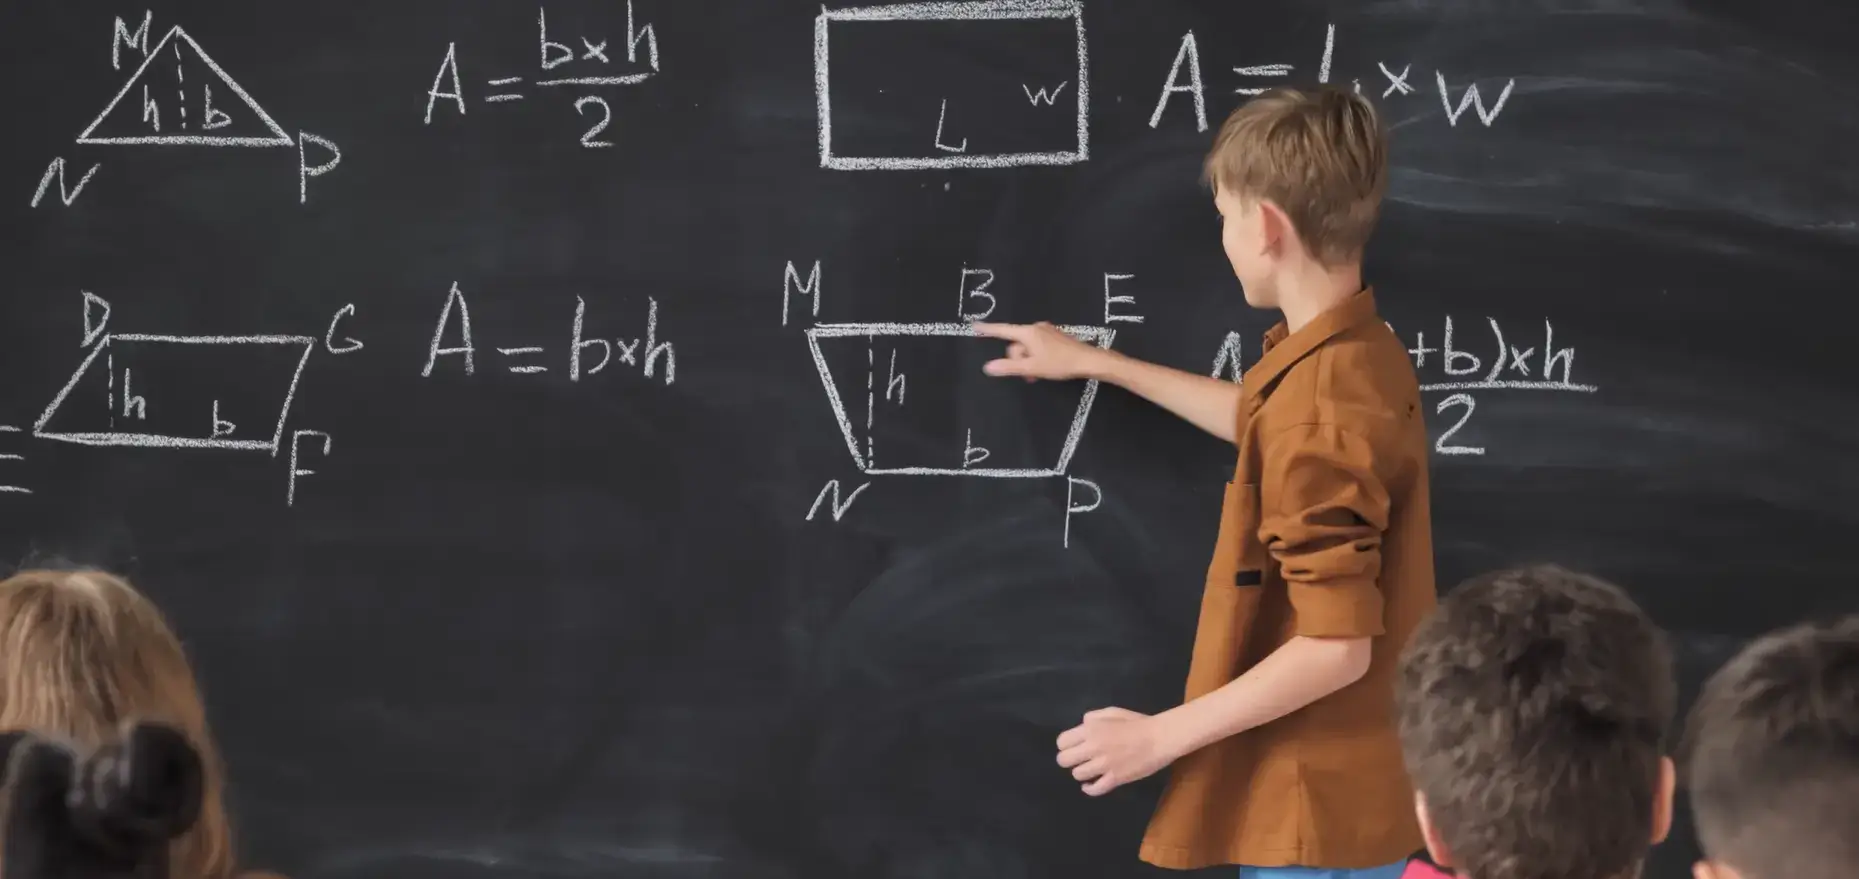 M
h b
N P
A = b×h
2
L w
A = L × w
D G
h b
F
A = b×h
M B E
h
b
N P
+b)×h
2